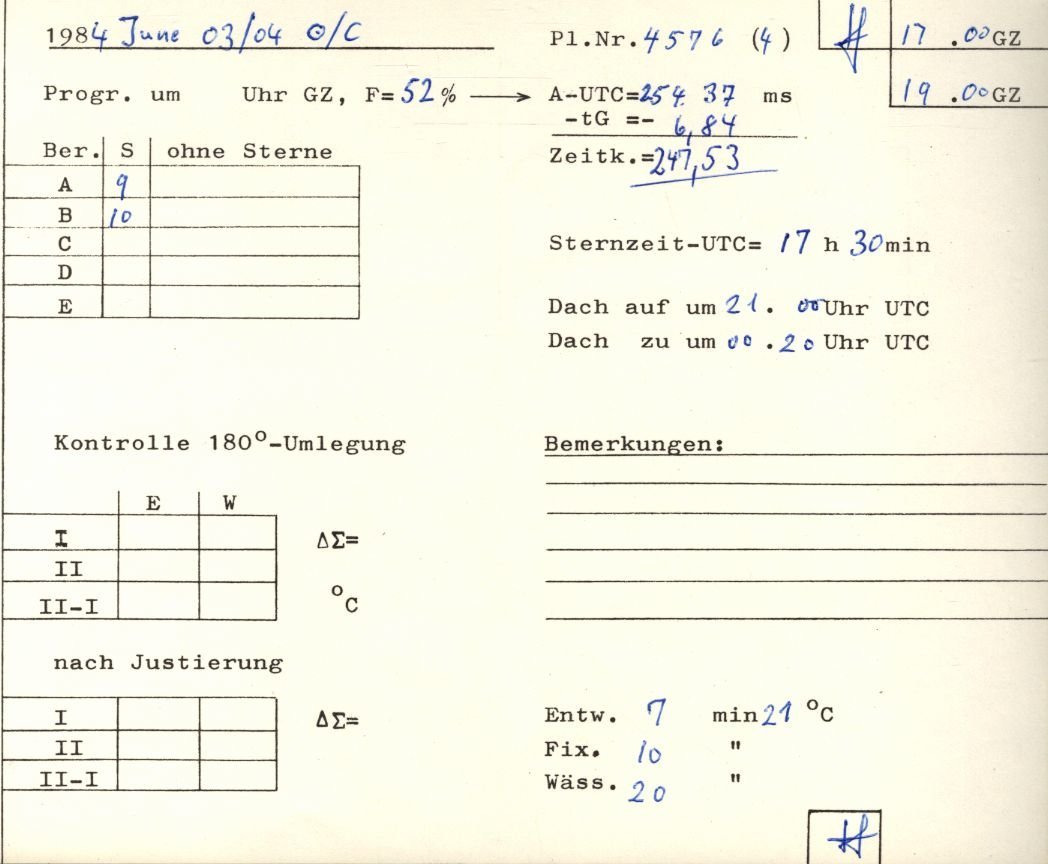 1984 June 03/04 O/C
Pl.Nr. 4576 (4)
17 .00 GZ
Progr. um Uhr GZ, F= 52% → A-UTC=254 37 ms
19 .00 GZ
-tG =- 6,84
Ber. S ohne Sterne
Zeitk.=247,53
A 9
B 10
C
Sternzeit-UTC= 17 h 30min
D
E
Dach auf um 21. 00 Uhr UTC
Dach zu um 00 .20 Uhr UTC
Kontrolle 180°-Umlegung
Bemerkungen:
E W
I ΔΣ=
II
II-I °C
nach Justierung
I ΔΣ=
II
II-I
Entw. 7 min 21 °C
Fix. 10 "
Wäss. 20 "